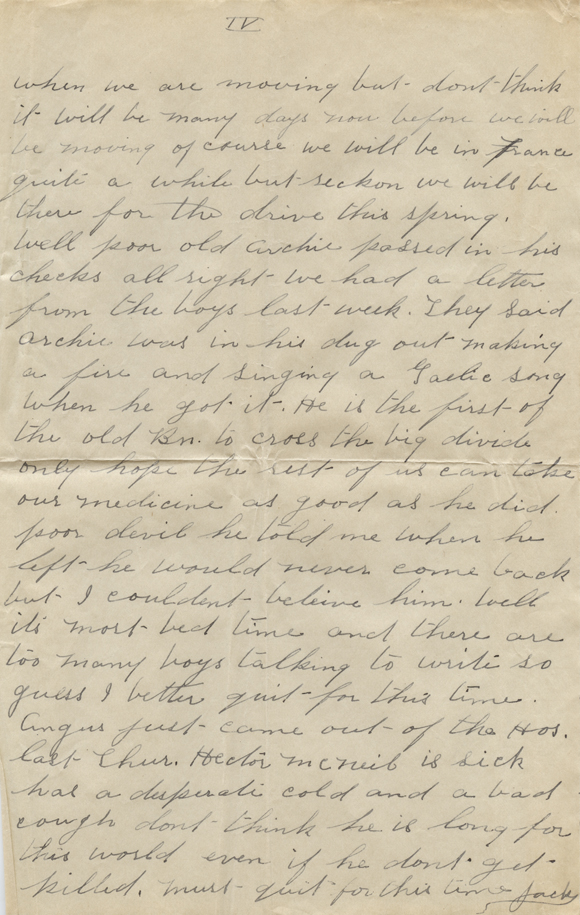 IV
when we are moving but dont think
it will be many days now before we will
be moving of course we will be in France
quite a while but reckon we will be
there for the drive this spring.
Well poor old Archie passed in his
checks all right we had a letter
from the boys last week. They said
Archie was in his dug out making
a fire and singing a Gaelic song
when he got it. He is the first of
the old Bn. to cross the big divide
only hope the rest of us can take
our medicine as good as he did.
poor devil he told me when he
left he would never come back
but I couldent beleive him. Well
its most bed time and there are
too many boys talking to write so
guess I better quit for this time.
Angus just came out of the Hos.
last Thur. Hector McNeil is sick
has a desperate cold and a bad
cough dont think he is long for
this world even if he dont get
killed. must quit for this time Jack